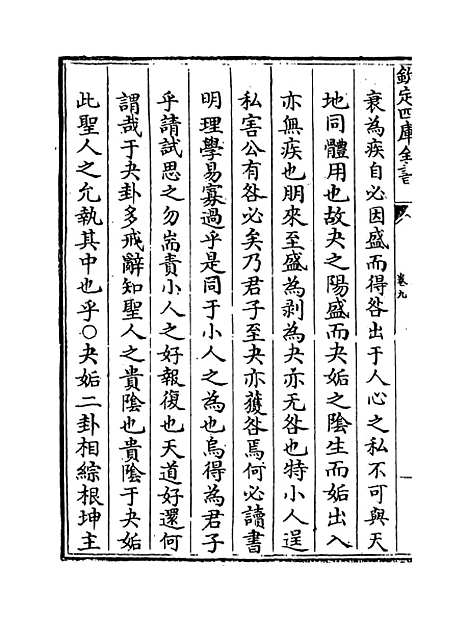 欽定四庫全書
卷九
衰為疾自必因盛而得咎出于人心之私不可與天
地同體用也故夬之陽盛而夬姤之陰生而姤出入
亦無疾也朋來至盛為剥為夬亦无咎也特小人逞
私害公有咎必矣乃君子至夬亦獲咎焉何必讀書
明理學易寡過乎是同于小人之為也烏得為君子
乎請試思之勿耑責小人之好報復也天道好還何
謂哉于夬卦多戒辭知聖人之貴陰也貴陰于夬姤
此聖人之允執其中也乎○夬姤二卦相綜根坤主